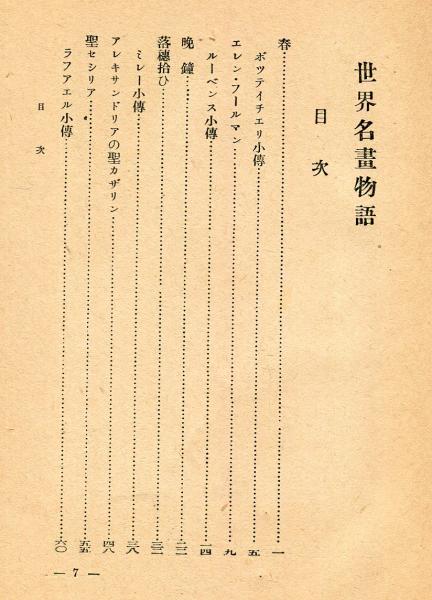 世界名畫物語
目次
春……一
ボッテイチエリ小傳……五
エレン・フールマン……九
ルーベンス小傳……一四
晩鐘……二二
落穗拾ひ……三二
ミレー小傳……三八
アレキサンドリアの聖カザリン……四八
聖セシリア……五五
ラフアエル小傳……六〇
目次
— 7 —